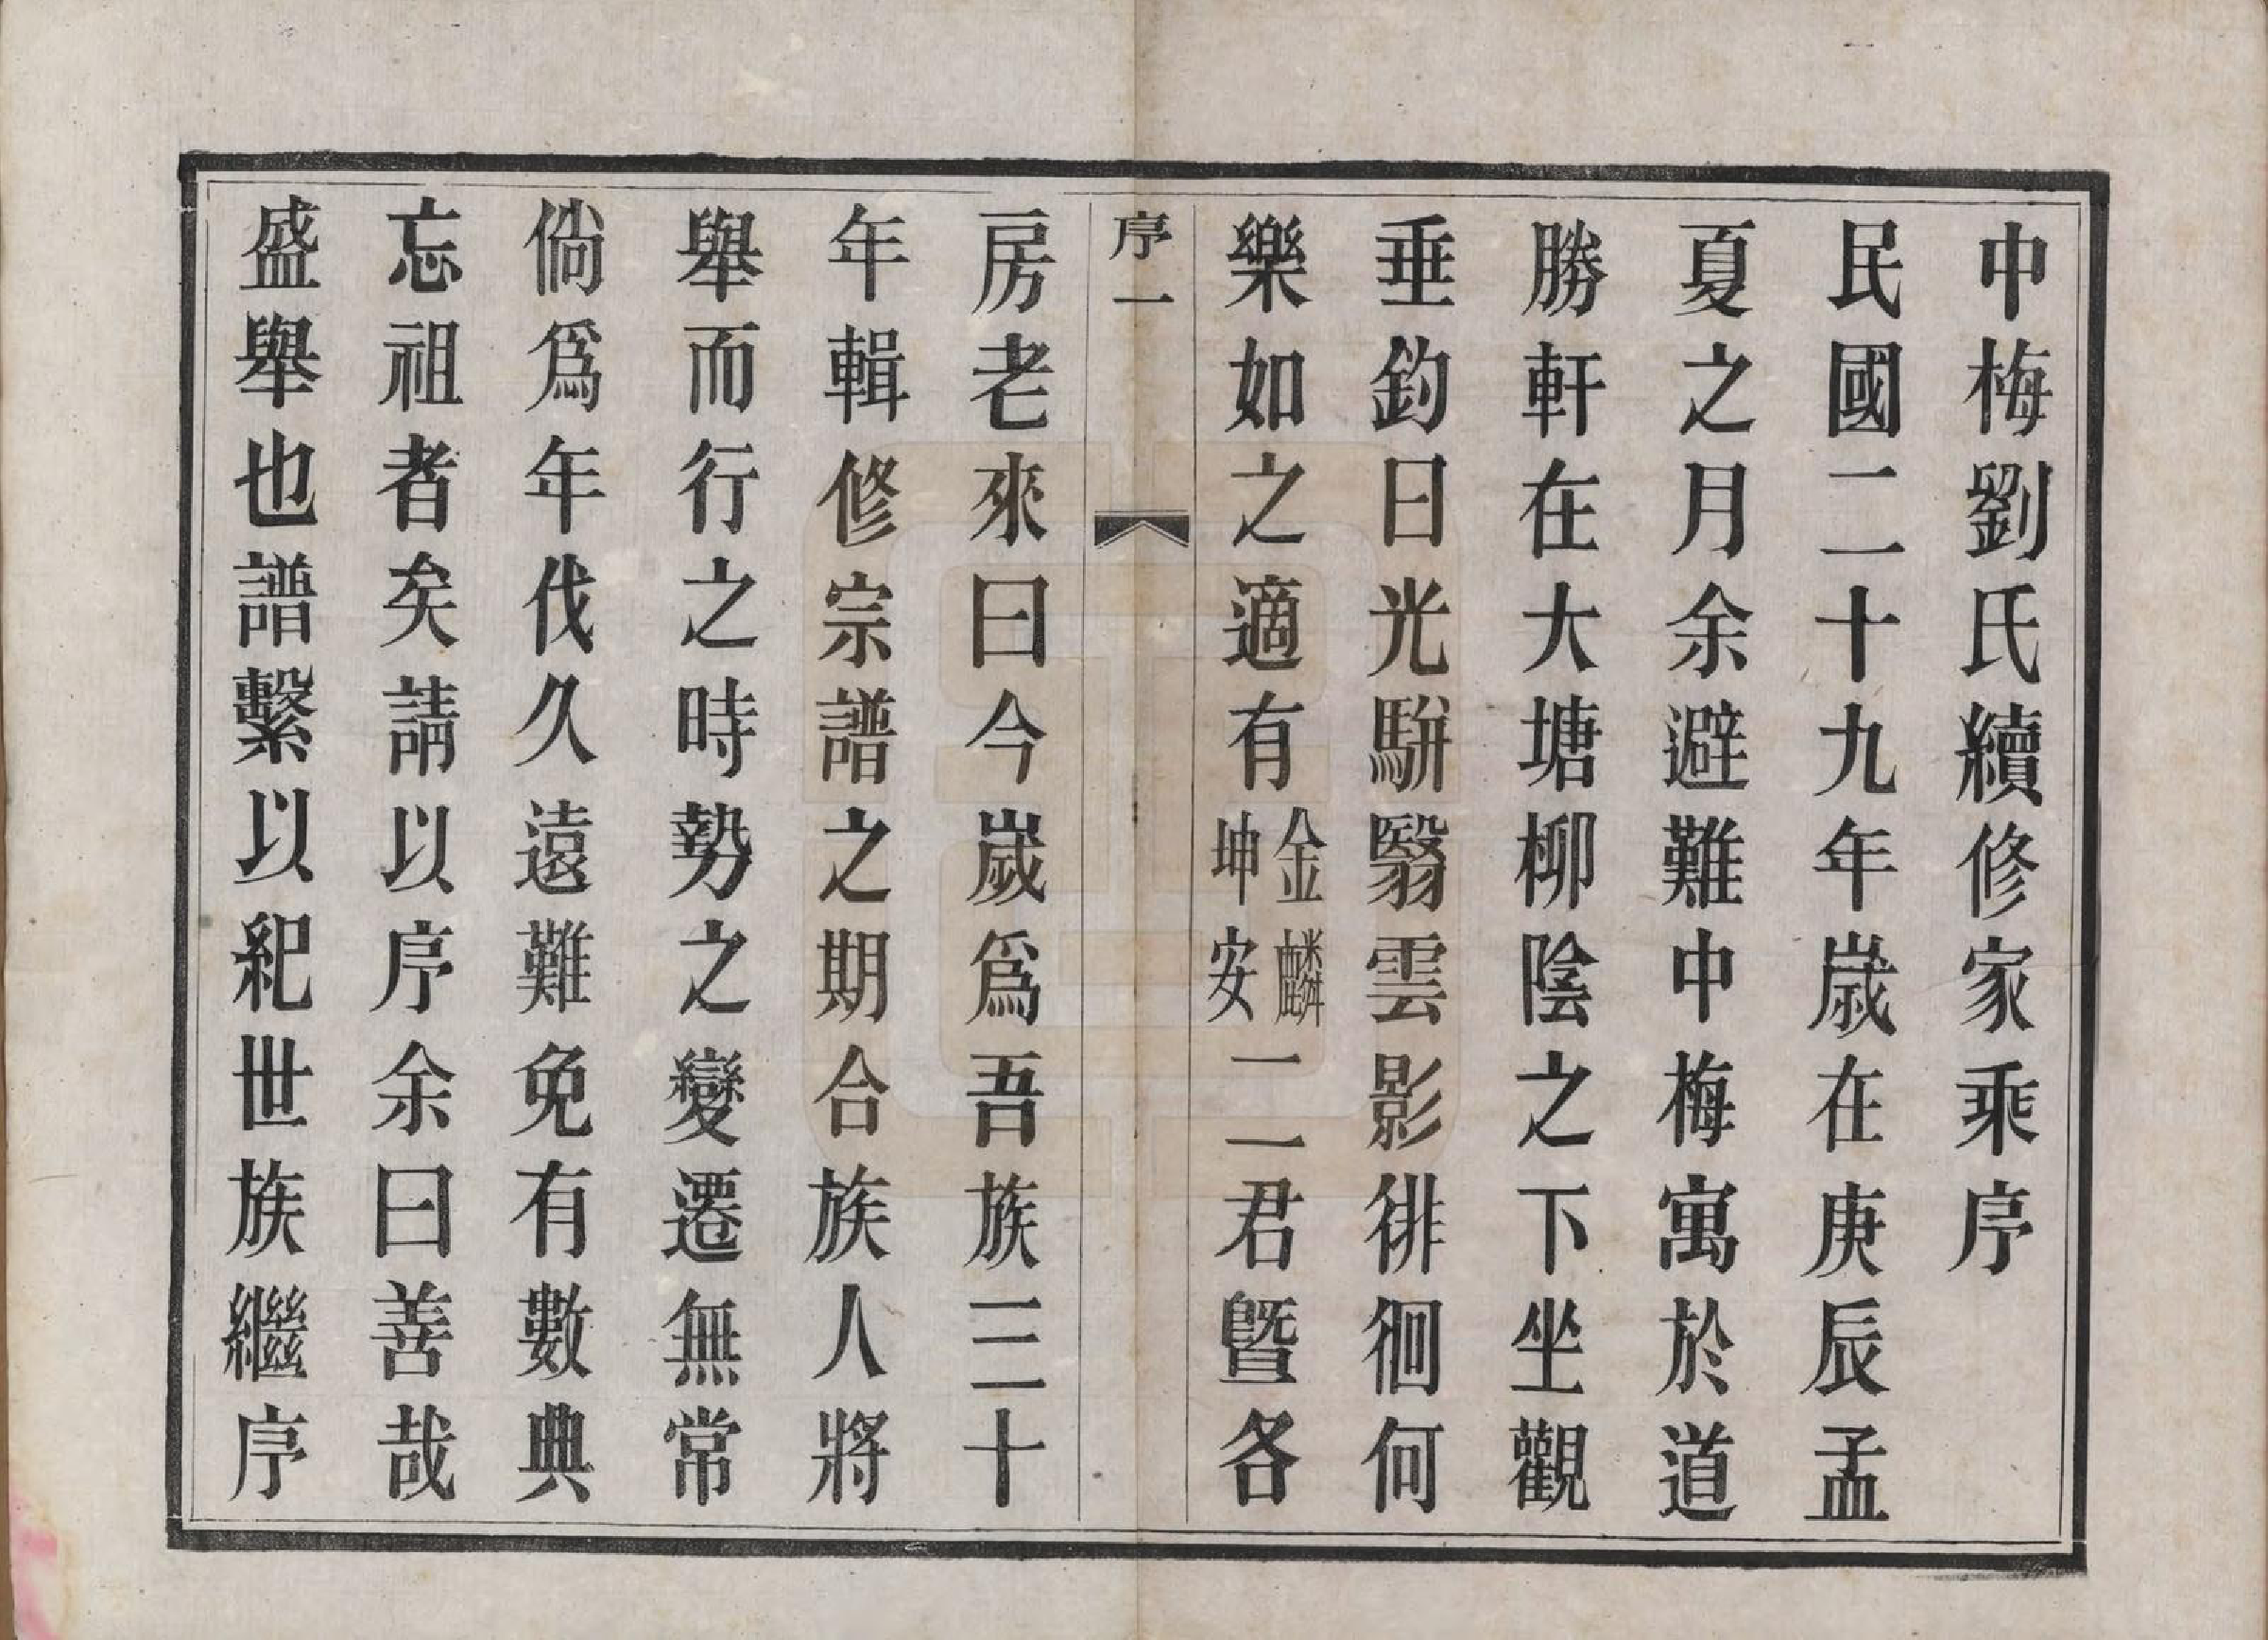 中梅劉氏續修家乘序
民國二十九年歲在庚辰孟
夏之月余避難中梅寓於道
勝軒在大塘柳陰之下坐觀
垂鈞日光駢翳雲影徘徊何
樂如之適有金麟坤安二君曁各
序一
房老來曰今嵗爲吾族三十
年輯修宗譜之期合族人將
舉而行之時勢之變遷無常
倘爲年伐久遠難免有數典
忘祖者矣請以序余曰善哉
盛舉也譜繫以紀世族繼序